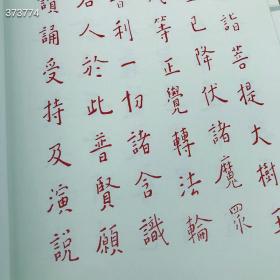 373774
詣菩提大樹王
已降伏諸魔眾
等正覺轉法輪
利一切諸含識
若人於此普賢願
讀誦受持及演說